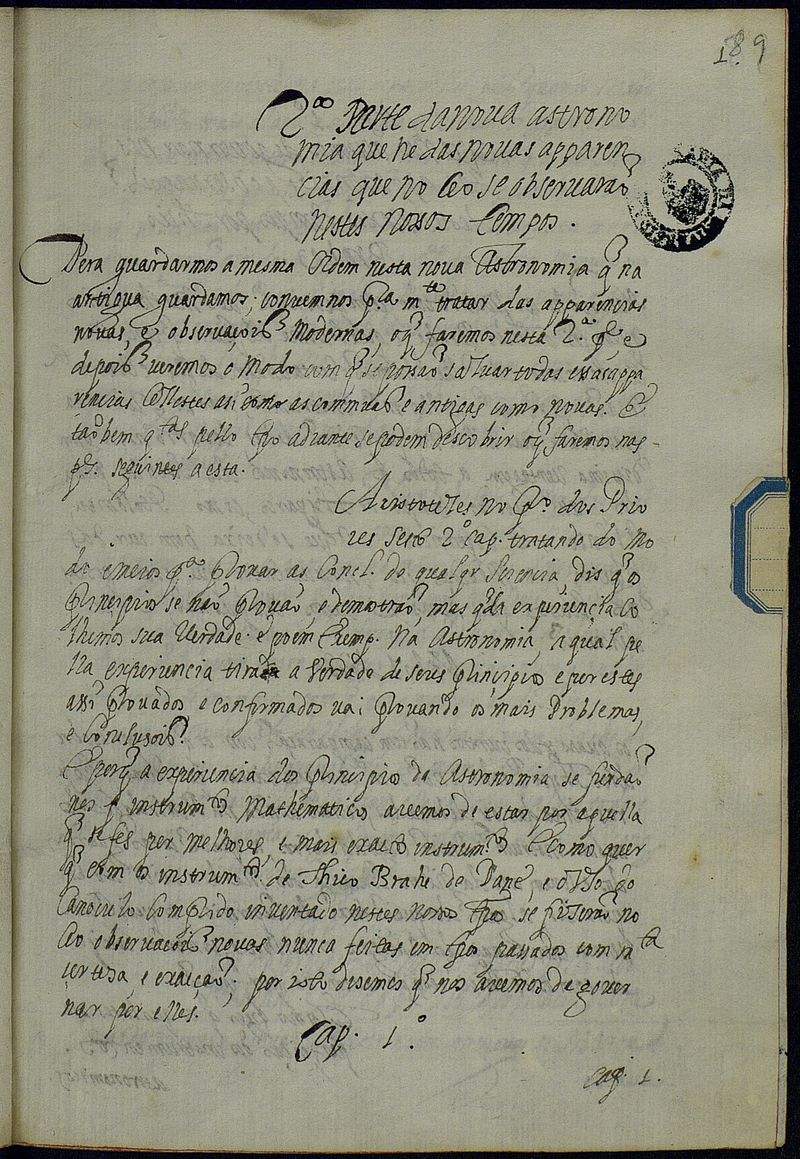 189
2ª Parte da nova astrono
mia que he das novas apparen
cias que no Ceo se observarão
nestes nossos tempos.
Pera guardarmos a mesma Ordem nesta nova Astronomia q̃ na
antigua guardamos; convemnos pª a mta tratar das apparencias
novas, e observaçois Modernas, oq̃ faremos nesta 2.ª pe e
depois veremos o Modo com q̃ se possão salvar todas essas appa
rencias Celestes assi como as commuas e antigas como novas. E
taõbem qtas pello tpo adiante se podem descobrir oq̃ faremos nas
ptes seguintes a esta.
Aristoteles no pº dos Prio
res 2º cap. tratando do Mo
do e meios pª provar as Concl. de qualqr sciencia, dis q̃ os
principios se não provão, e demostrão, mas q̃ da experiencia Co
lhemos sua Verdade. e poem Exemp. Na Astronomia, a qual pe
lla experiencia tira a Verdade de seus principios e por estes
assi provados e confirmados vai provando os mais Problemas,
e Conclusois.
E porq̃ a experiencia dos principios da Astronomia se fundão
nos instrumtos Mathematicos avemos de estar por aquella
q̃ se fes por melhores, e mais exactos instrumtos E como quer
q̃ com os instrumtos de Thico Brahe de Dane, e o Uso do
Canoculo Comprido inventado nestes nossos tpos se fiserão no
Ceo observaçois novas nunca feitas em tpos passados com mta
certesa, e exacção. por isto disemos q̃ nos avemos de gover
nar por elles.
Cap. 1º.
Cap. 1.